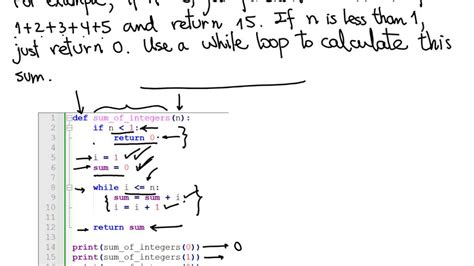 For example, if n
1+2+3+4+5 and return 15. If n is less than 1,
just return 0. Use a while loop to calculate this
sum.
1 def sum_of_integers(n):
2 if n < 1:
3 return 0
4
5 i = 1
6 sum = 0
7
8 while i <= n:
9 sum = sum + i
10 i = i + 1
11
12 return sum
13
14 print(sum_of_integers(0)) → 0
15 print(sum_of_integers(1)) →